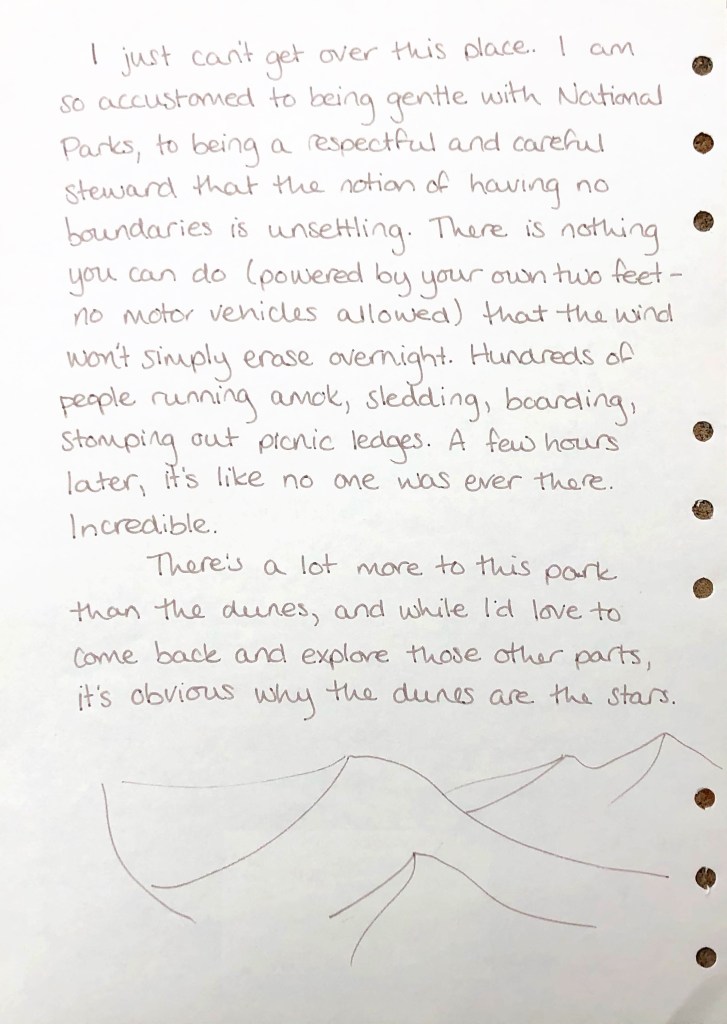 I just can't get over this place. I am
so accustomed to being gentle with National
Parks, to being a respectful and careful
steward that the notion of having no
boundaries is unsettling. There is nothing
you can do (powered by your own two feet-
no motor vehicles allowed) that the wind
won't simply erase overnight. Hundreds of
people running amok, sledding, boarding,
stomping out picnic ledges. A few hours
later, it's like no one was ever there.
Incredible.
There's a lot more to this park
than the dunes, and while I'd love to
come back and explore those other parts,
it's obvious why the dunes are the stars.